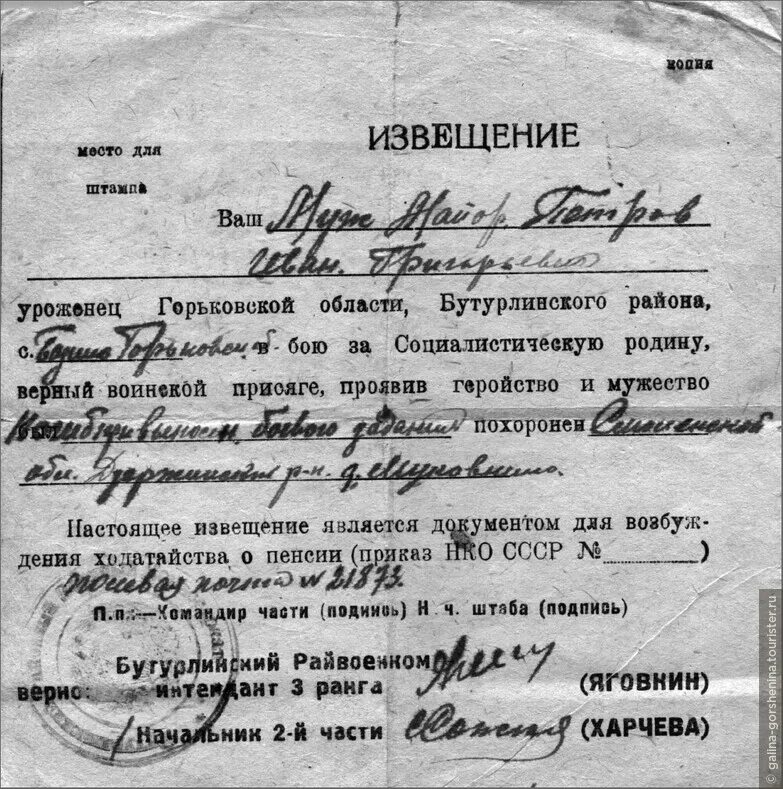 копия
ИЗВЕЩЕНИЕ
место для
штампа
Ваш Муж Майор Петров
Иван Григорьевич
уроженец Горьковской области, Бутурлинского района,
с. Горьковск в бою за Социалистическую родину,
верный воинской присяге, проявив геройство и мужество
был боевого задания похоронен Смоленской
обл. Дзержинский р-н д.
Настоящее извещение является документом для возбуж-
дения ходатайства о пенсии (приказ НКО СССР № )
полевая почта № 21873.
П.п.—Командир части (подпись) Н.ч. штаба (подпись)
Бутурлинский Райвоенком
верно: интендант 3 ранга (ЯГОВКИН)
Начальник 2-й части (ХАРЧЕВА)
© galina-gorshenina.tourister.ru